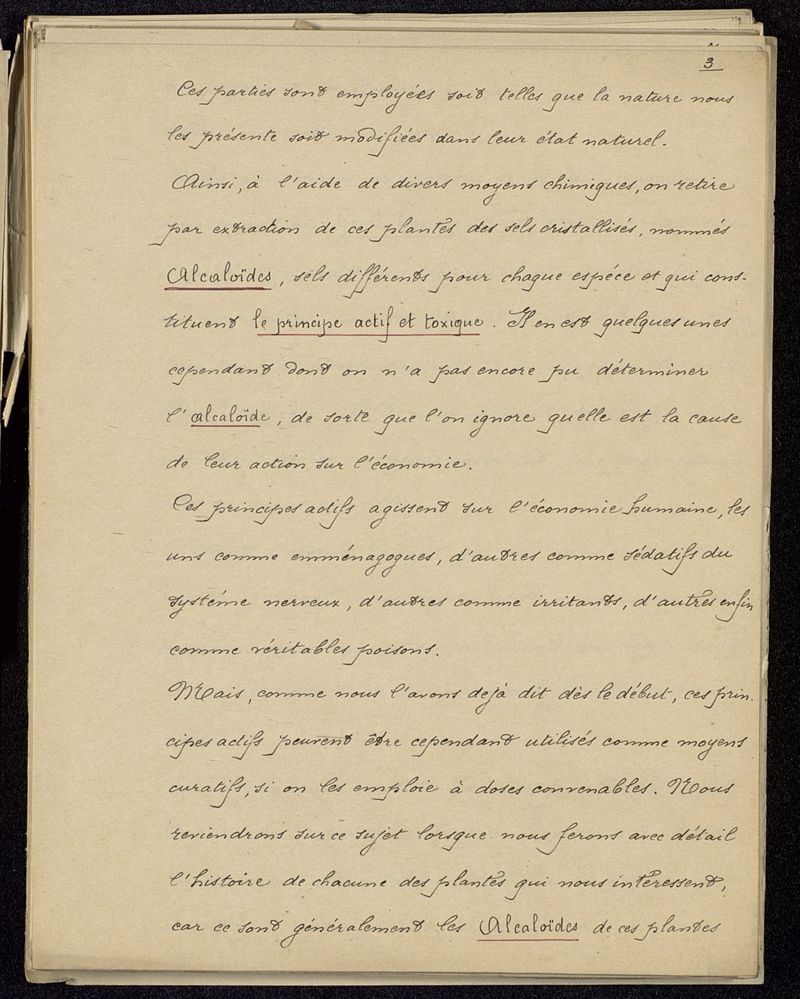 3
Ces parties sont employées soit telles que la nature nous
les présente soit modifiées dans leur état naturel.
Ainsi, à l'aide de divers moyens chimiques, on retire
par extraction de ces plantes des sels cristallisés, nommés
Alcaloïdes, sels différents pour chaque espéce et qui cons-
tituent le principe actif et toxique. Il en est quelques unes
cependant dont on n'a pas encore pu déterminer
l'alcaloïde, de sorte que l'on ignore quelle est la cause
de leur action sur l'économie.
Ces principes actifs agissent sur l'économie humaine, les
uns comme emménagogues, d'autres comme sédatifs du
systéme nerveux, d'autres comme irritants, d'autres enfin
comme véritables poisons.
Mais, comme nous l'avons dejà dit dès le début, ces prin-
cipes actifs peuvent être cependant utilisés comme moyens
curatifs, si on les emploie à doses convenables. Nous
reviendrons sur ce sujet lorsque nous ferons avec détail
l'histoire de chacune des plantes qui nous intéressent,
car ce sont généralement les Alcaloïdes de ces plantes